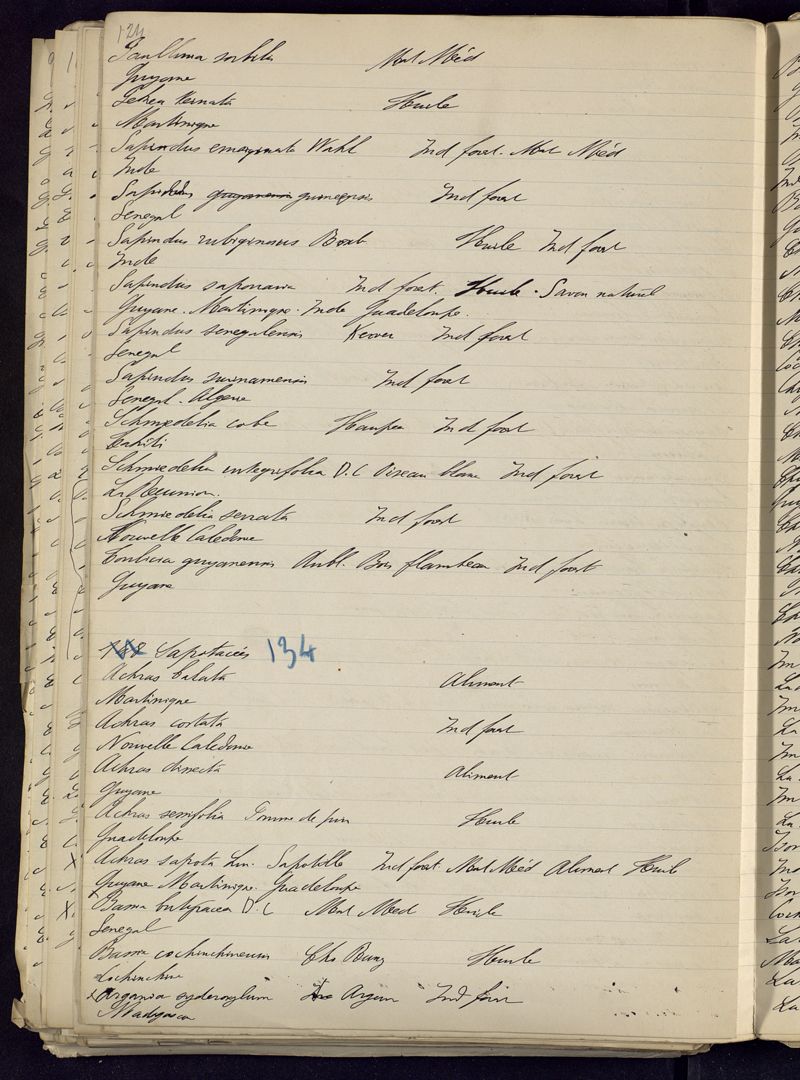 124
Paullinia sorbilis Mat Méd
Guyane
Lehea ternata Huile
Martinique
Sapindus emarginata Wahl Ind forest. Mat Méd
Inde
Sapindus guyanensis guineensis Ind forest
Senegal
Sapindus rubiginosus Roxb Huile Ind forest
Inde
Sapindus saponaria Ind forest. Huile. Savon naturel
Guyane. Martinique. Inde Guadeloupe.
Sapindus senegalensis Kewer Ind forest
Senegal
Sapindus surinamensis Ind forest
Senegal. Algerie
Schmiedelia cobe Haupea Ind forest
Tahiti
Schmiedelia integrifolia D.C Oiseau blanc Ind forest
La Reunion.
Schmiedelia serrata Ind forest
Nouvelle Caledonie
Toulicia guyanensis Aubl. Bois flambeau Ind forest
Guyane
Sapotacées 134
Achras balata Aliment
Martinique
Achras costata Ind forest
Nouvelle Caledonie
Achras dissecta Aliment
Guyane
Achras Pomme de pin Huile
Guadeloupe
x Achras sapota Lin. Sapotille Ind forest Mat Méd Aliment Huile
Guyane Martinique. Guadeloupe
x Bassia butyracea D.C Mat Med Huile
Senegal
Bassia cochinchinensis Cho Bung Huile
Cochinchine
x Argania syderoxylum Argan Ind forest
Madagascar